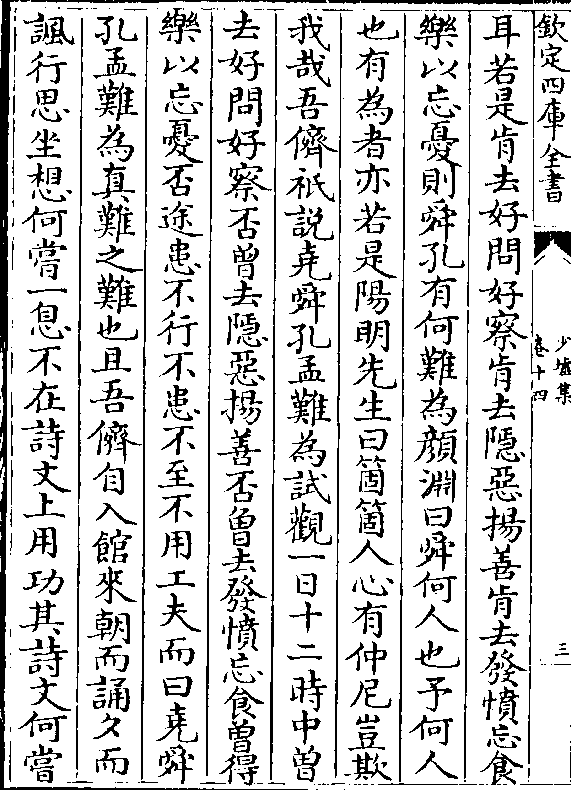 欽定四庫全書
少墟集
卷十四
三
耳若是肯去好問好察肯去隱惡揚善肯去發憤忘食
樂以忘憂則舜孔有何難為顏淵曰舜何人也予何人
也有為者亦若是陽明先生曰箇箇人心有仲尼豈欺
我哉吾儕祇説堯舜孔孟難為試觀一日十二時中曽
去好問好察否曽去隱惡揚善否曽去發憤忘食曽得
樂以忘憂否途患不行不患不至不用工夫而曰堯舜
孔孟難為真難之難也且吾儕自入館來朝而誦夕而
諷行思坐想何嘗一息不在詩文上用功其詩文何嘗